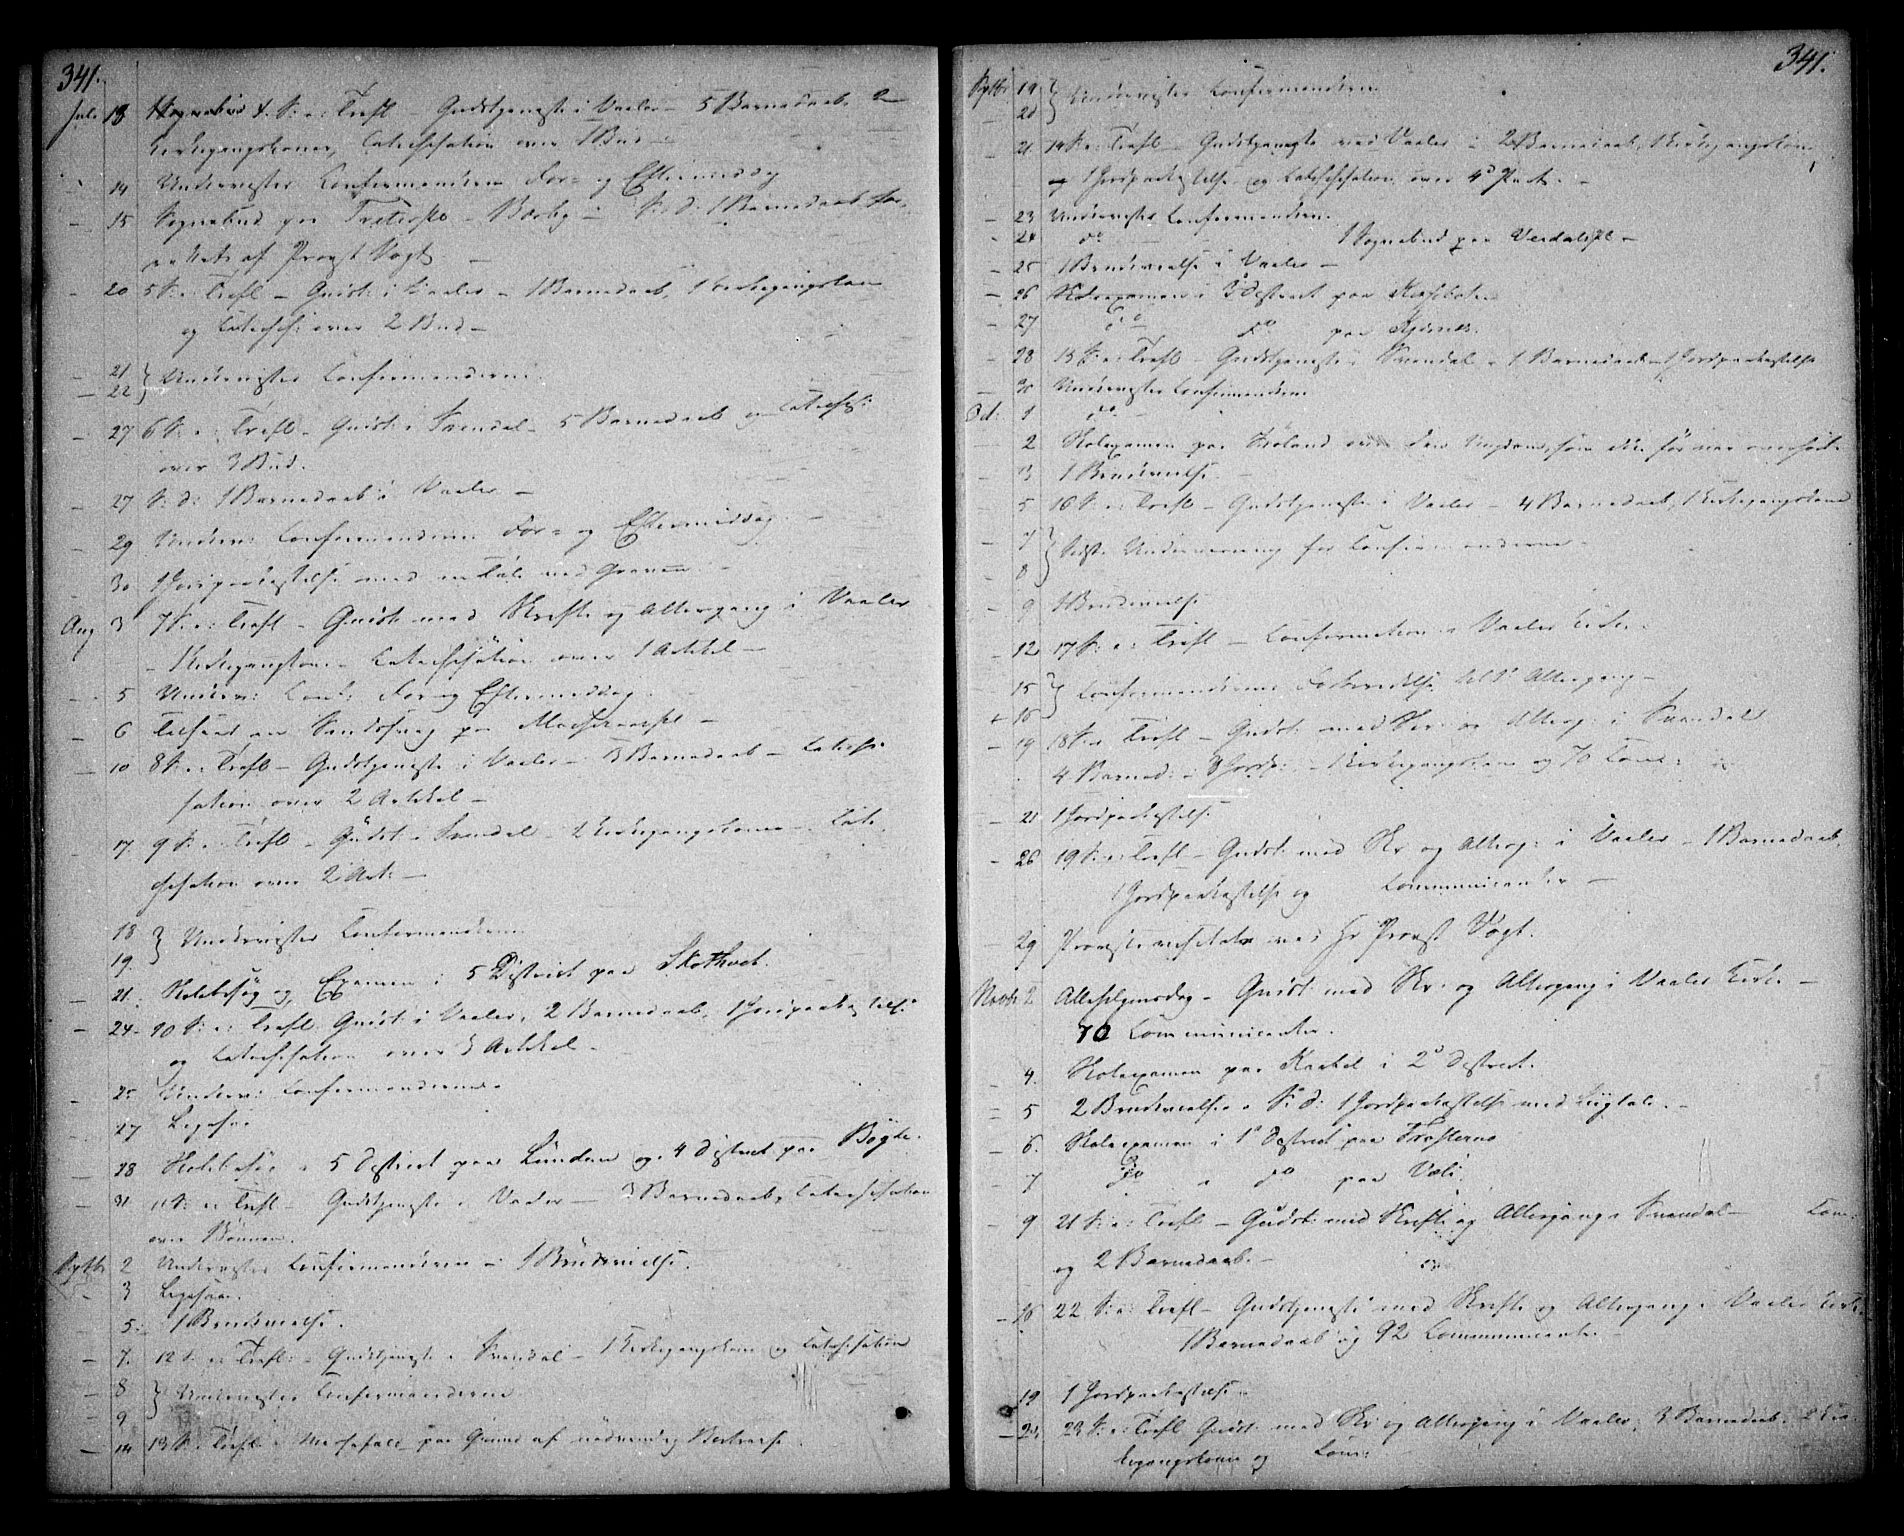 341.
Juli 13 4 S: e: Trefl – Gudstjeneste i Vaaler – 5 Barnedaab, 2
Kirkegangskoner, Catechisation over 1 Bud –
– 14 Underviste Confirmanderne For- og Eftermiddag
– 15 Sognebud paa – S: d: 1 Barnedaab for-
rettet af Provst Vogt –
– 20 5 S: e: Trefl – Gudst: i Vaaler – 1 Barnedaab, 1 Kirkegangskone
og Catechis: over 2 Bud –
– 21
– 22 } Underviste Confirmanderne
– 27 6 S: e: Trefl – Gudst: i Svendal – 5 Barnedaab og Catechis:
over 3 Bud.
– 27 S: d: 1 Barnedaab i Vaaler –
– 29 Underv: Confirmanderne For- og Eftermiddag. –
– 30 1 Jordpaakastelse med en Tale ved Graven –
Aug 3 7 S: e: Trefl – Gudst: med Skrifte og Altergang i Vaaler
– 1 Kirkegangskone – Catechisation over 1 Artikel –
– 5 Underv: Conf: For- og Eftermiddag.
– 6 Tilsaae en Sandsvag paa
– 10 8 S: e: Trefl – Gudstjeneste i Vaaler – 3 Barnedaab – Catechi-
sation over 2 Artikel –
– 17 9 S: e: Trefl – Gudst: i Svendal – 2 Kirkegangskoner – Cate-
chisation over 2 Art: –
18
19. } Underviste Confirmanderne
– 21. Skolebesøg og Examen i 5 District paa Skothvet.
– 24 10 S: e: Trefl Gudst: i Vaaler, 2 Barnedaab, 1 Jordpaakastelse
og Catechisation over 3 Artikel –
– 25 Underv: Confirmanderne.
– 27 Ligesaa
– 28 Skolebesøg i 5 District paa Lunden og 4 District paa Bøgte.
– 31 11 S: e: Trefl – Gudstjeneste i Vaaler – 3 Barnedaab, Catechisation
over Bønnen.
Septbr 2 Underviste Confirmanderne – 1 Brudevielse.
– 3 Ligesaa.
5. 1 Brudevielse.
– 7. 12 S: e: Trefl: – Gudstjeneste i Svendal – 1 Kirkegangskone og Catechisation
– 8
– 9 } Underviste Confirmanderne
– 14 13 S: e: Trefl: Messefald paa Grund af nødvendig Bortreise.
341.
Septbr 19
20 } Underviste Confirmanderne.
– 21 14 S: e: Trefl – Gudstjeneste ved Vaaler – 2 Barnedaab, 1 Kirkegangskone
og 1 Jordpaakastelse og Catechisation over 4de Part. –
– 23 Underviste Confirmanderne.
– 24 do – 1 Sognebud paa Verdalspl –
– 25 1 Brudevielse i Vaaler –
– 26 Skoleexamen i 3 District paa
– 27 do do paa Kjernes.
– 28 15 S: e: Trefl – Gudstjeneste i Svendal – 1 Barnedaab – 1 Jordpaakastelse
– 30 Underviste Confirmanderne
Oct: 1 do –
– 2 Skoleexamen paa den Ungdom, som ikke før var
– 3 1 Brudevielse –
– 5 16 S: e: Trefl – Gudstjeneste i Vaaler – 4 Barnedaab, 1 Kirkegangskone
– 7
– 8 } Sidste Underviisning for Confirmanderne –
– 9 1 Brudevielse
– 12 17 S: e: Trefl – Confirmation i Vaaler Kirke. –
– 15
– 16 } Confirmandernes Forberedelse til 1ste Altergang –
– 19 18 S: e: Trefl – Gudst: med Skr: og Alterg: i Svendal
4 Barned: – 3 Jordp: – 1 Kirkegangskone og 70 Com:
– 21 1 Jordpaakastelse.
– 26 19 S: e: Trefl – Gudst: med Skr og Alterg: i Vaaler – 1 Barnedaab,
1 Jordpaakastelse og Communicanter –
– 29 Provstevisitats ved Hr Provst Vogt.
Novbr 2 Allehelgensdag – Gudst: med Skr: og Altergang i Vaaler Kirke –
70 Communicanter.
– 4. Skoleexamen paa Kaabel i 2de District.
– 5 2 Brudevielser – S: d: 1 Jordpaakastelse med Liigtale. –
– 6. Skoleexamen i 1ste District paa
– 7 do do paa
– 9 21 S: e: Trefl – Gudst: med Skrifte og Altergang i Svendal – Com:
og 2 Barnedaab. –
– 16 22 S: e: Trefl – Gudstjeneste med Skrifte og Altergang i Vaaler Kirke
1 Barnedaab og 92 Communicanter. –
19 1 Jordpaakastelse –
– 23 23 S: e: Trefl Gudst: med Skr: og Altergang i Vaaler, 3 Barnedaab, 2 Kir-
kegangskoner og Com: